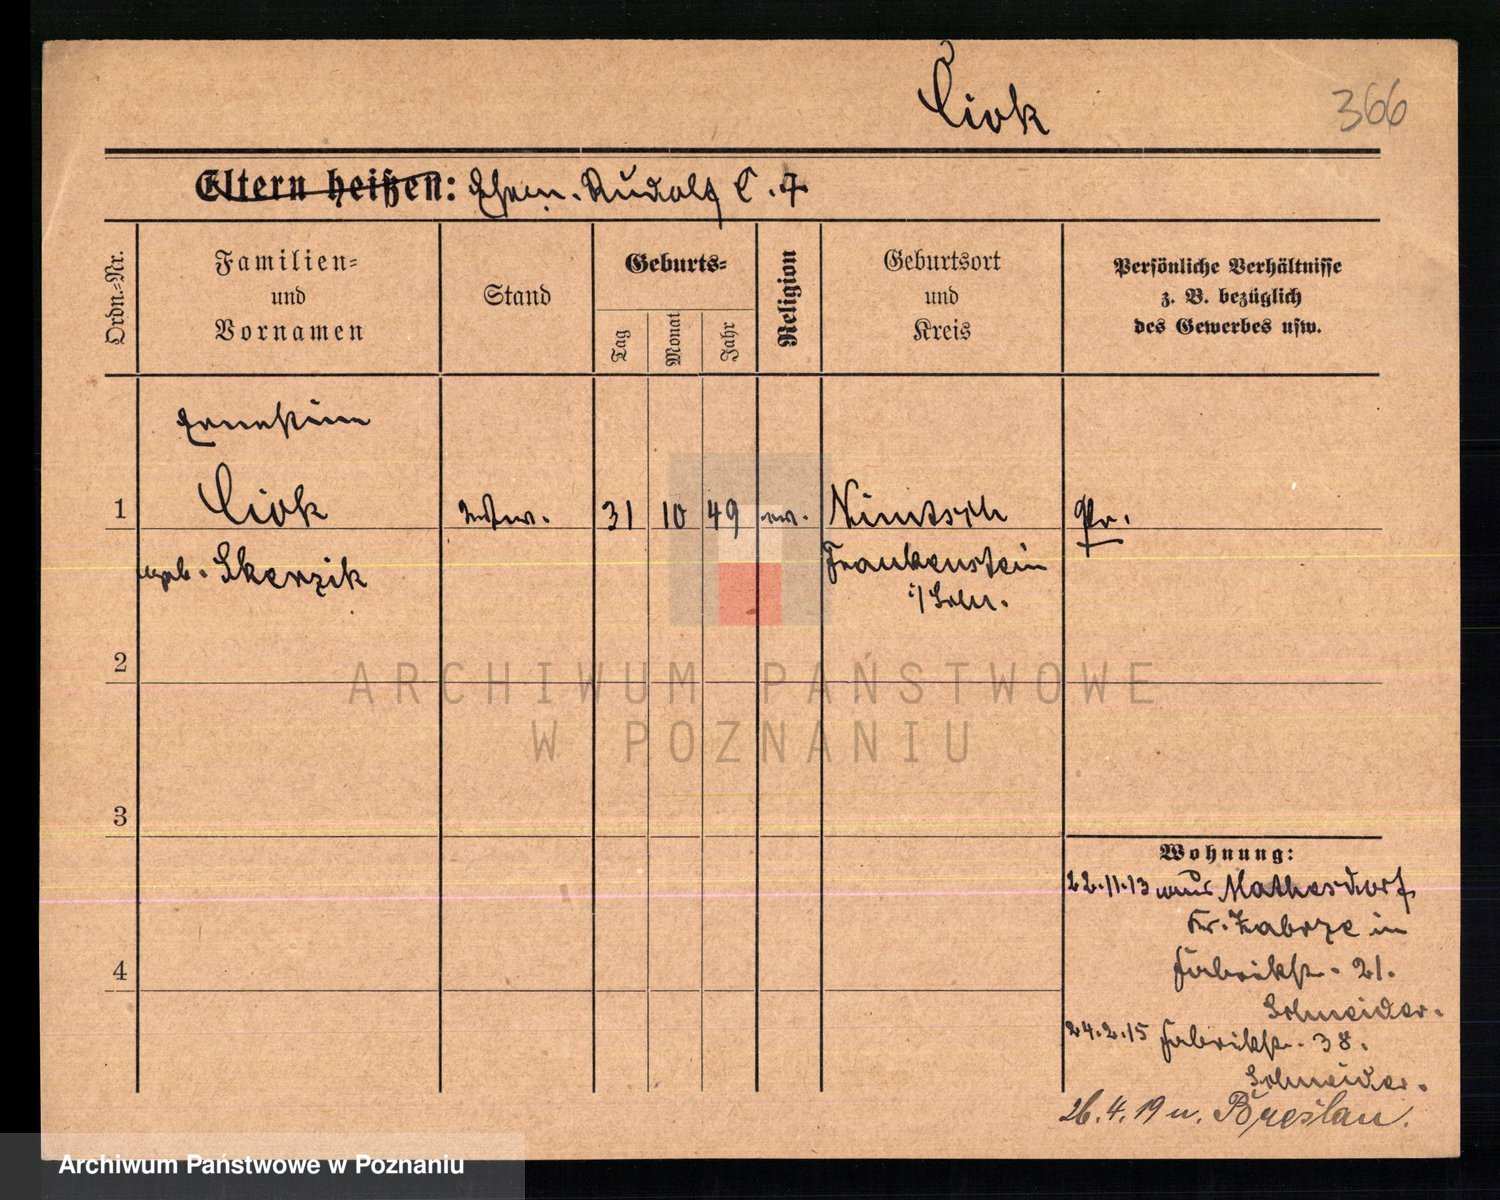 Ciok
366
Eltern heißen: Ehem. Rudolf C. †
Ordn.-Nr.
Familien-
und
Vornamen
Stand
Geburts-
Tag
Monat
Jahr
Religion
Geburtsort
und
Kreis
Persönliche Verhältnisse
z. B. bezüglich
des Gewerbes usw.
Ernestine
1 Ciok Wtw. 31 10 49 ev. Nimtsch Pr.
geb. Skerzik Frankenstein
i/Schl.
2
3
4
Wohnung:
22.11.13 aus Mathesdorf
Kr. Zabrze in
Fabrikstr. 21.
Schneider.
24.2.15 Fabrikstr. 38.
Schneider.
26.4.19 n. Breslau.
ARCHIWUM PAŃSTWOWE
W POZNANIU
Archiwum Państwowe w Poznaniu